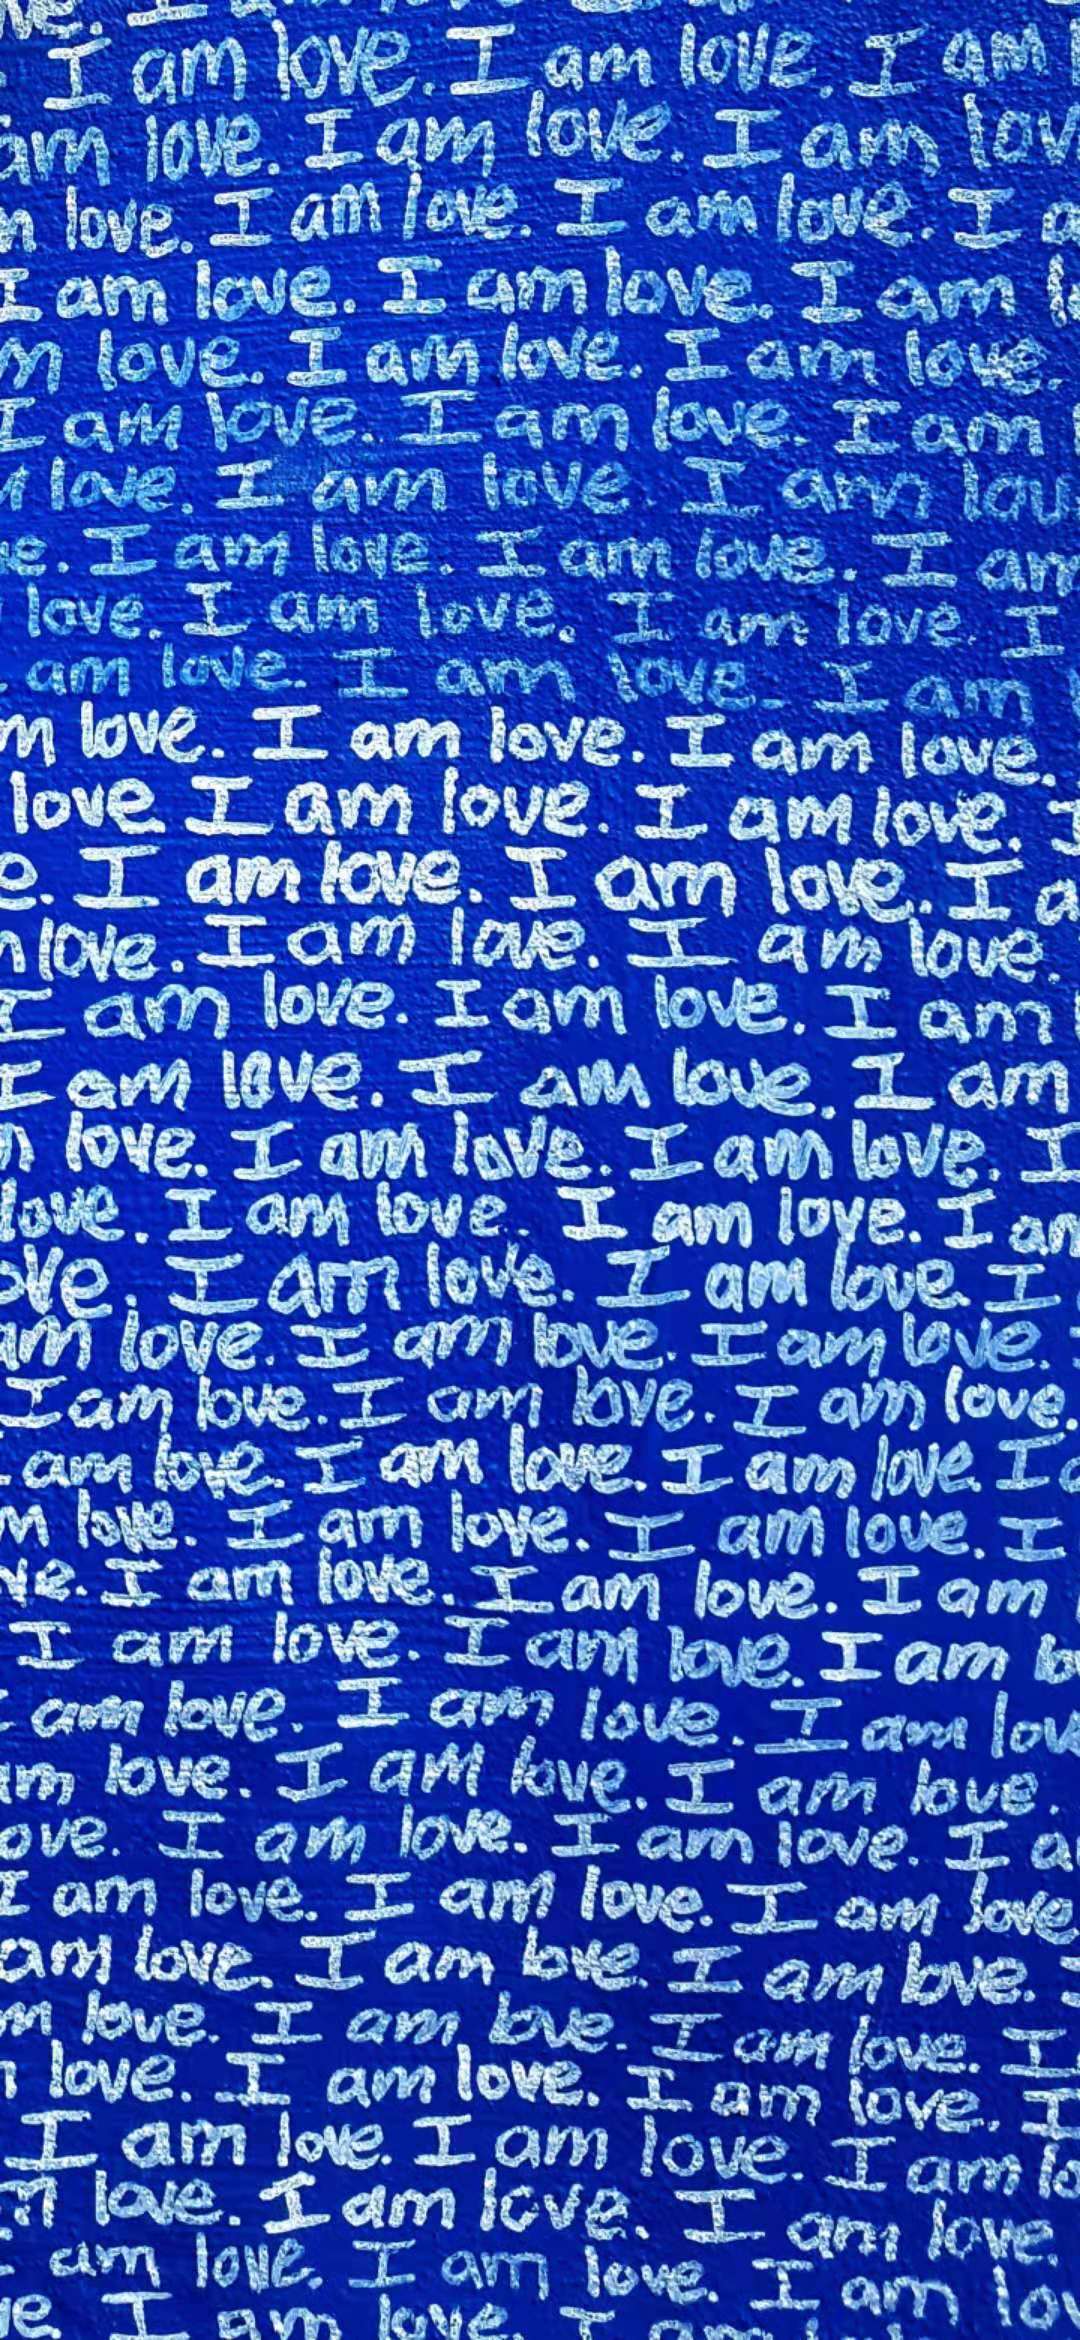 I am love. I am love. I am
am love. I am love. I am lov
love. I am love. I am love. I a
I am love. I am love. I am
m love. I am love. I am love.
I am love. I am love. I am
love. I am love. I am lov
e. I am love. I am love. I am
love. I am love. I am love. I
am love. I am love. I am
m love. I am love. I am love.
love I am love. I am love. I
e. I am love. I am love. I a
love. I am love. I am love.
I am love. I am love. I am
I am love. I am love. I am
love. I am love. I am love. I
love. I am love. I am love. I am
ove. I am love. I am love. I
am love. I am love. I am love.
I am love. I am love. I am love.
am love. I am love. I am love. I a
m love. I am love. I am love. I
ve. I am love. I am love. I am
I am love. I am love. I am lo
am love. I am love. I am lov
am love. I am love. I am love.
ove. I am love. I am love. I a
I am love. I am love. I am love
am love. I am love. I am love. I
m love. I am love. I am love. I
love. I am love. I am love. I
I am love. I am love. I am lo
m love. I am love. I am love.
am love. I am love. I am lov
ve. I am love. I am